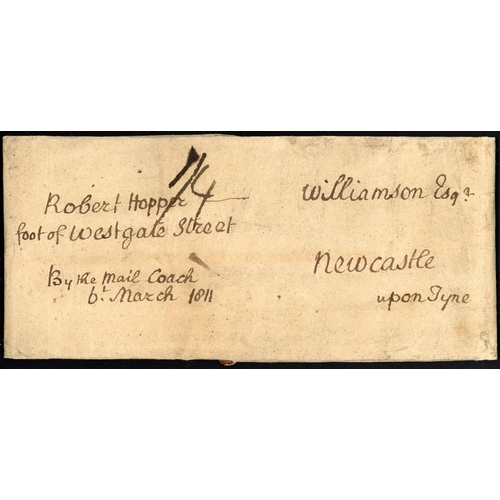 1/4
Robert Hopper Williamson Esqr
foot of Westgate Street
Newcastle
By the Mail Coach
6t March 1811
upon Tyne